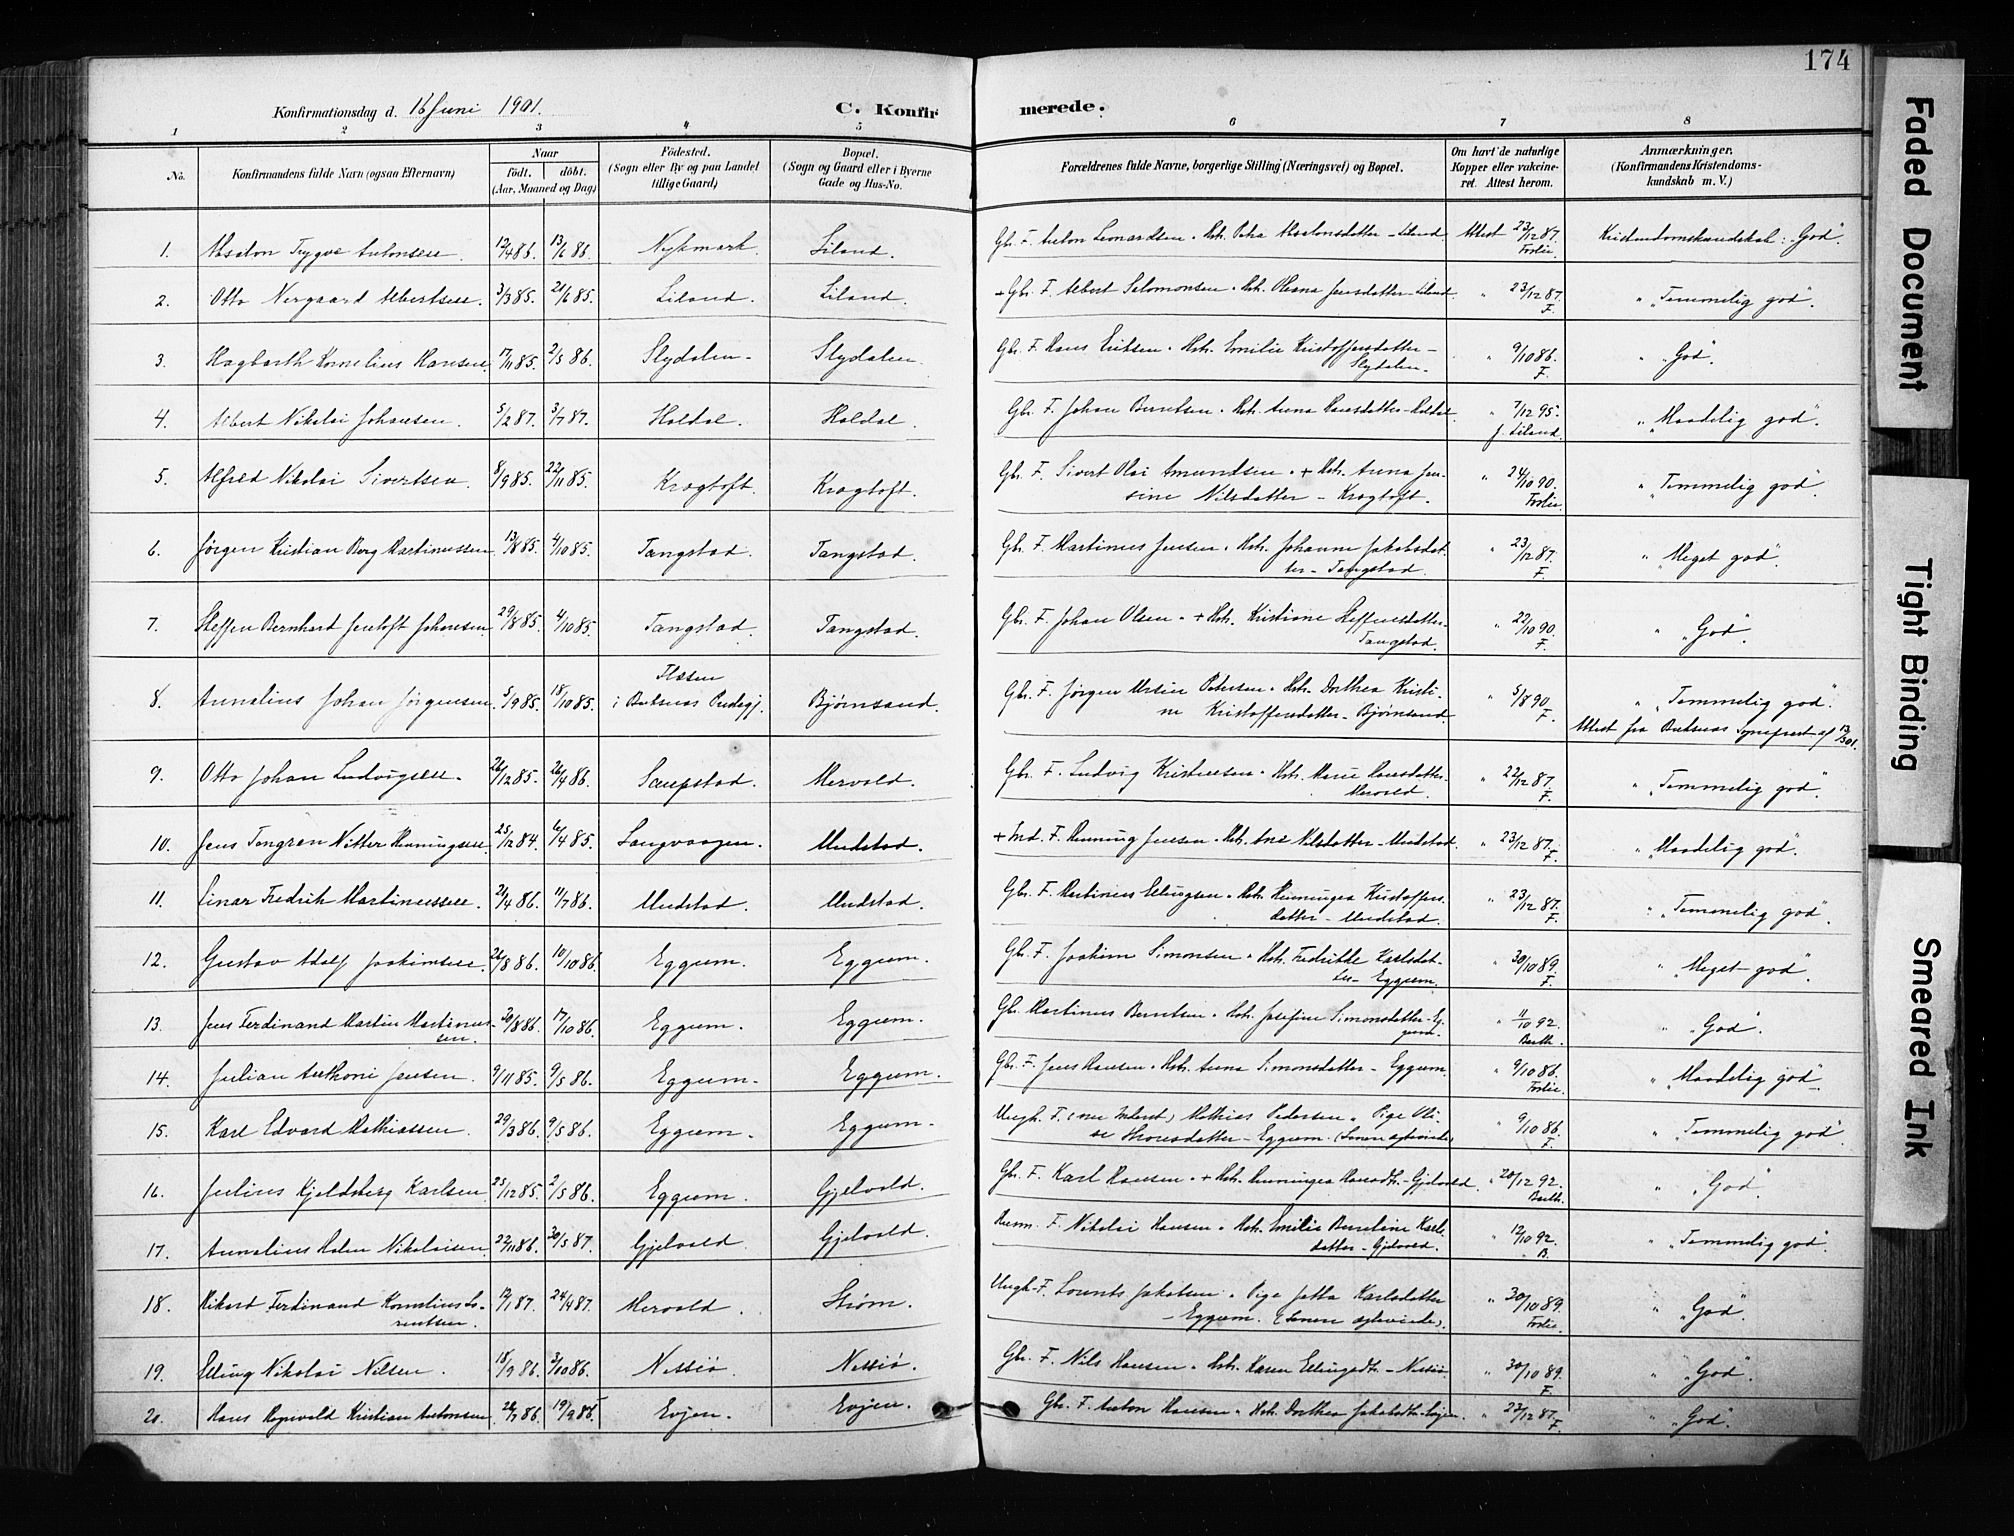 174
Konfirmationsdag d. 16 Juni 1901.
C. Konfirmerede.
1 2 3 4 5 6 7 8
No.
Konfirmandens fulde Navn (ogsaa Efternavn)
Naar
født. døbt.
(Aar, Maaned og Dag)
Födested.
(Sogn eller By og paa Landet
tillige Gaard)
Bopæl.
(Sogn og Gaard eller i Byerne
Gade og Hus-No.
Forældrenes fulde Navne, borgerlige Stilling (Næringsvei) og Bopæl.
Om havt de naturlige
Kopper eller vakcine-
ret. Attest herom.
Anmærkninger.
(Konfirmandens Kristendoms-
kundskab m. V.)
1. Absalon Trygve Antonsen. 12/4 86. 13/6 86. Nykmark. Liland. Gbr. F. Anton Leonardsen. Hstr. Petra Absalonsdatter - Liland. Attest 23/12 87. Kristendomskundskab: "God".
2. Otto Nergaard Albertsen. 3/3 85. 21/6 85. Liland. Liland. + Gbr. F. Albert Salomonsen. Hstr. Oleana Jensdatter - Liland. " 23/12 87. F. " "Temmelig god".
3. Hagbarth Kornelius Hansen. 17/11 85. 2/5 86. Slydalen. Slydalen. Gbr. F. Hans Eriksen. Hstr. Emilie Kristoffersdatter -
Slydalen. " 9/10 86. F. " "God".
4. Albert Nikolai Johansen. 5/2 87. 3/7 87. Holdal. Holdal. Gbr. F. Johan Berntsen. Hstr. Anna Hansdatter - Holdal. " 7/12 95. J. Liland. " "Maadelig god".
5. Alfred Nikolai Sivertsen. 8/9 85. 22/11 85. Kragtoft. Kragtoft. Gbr. F. Sivert Olai Amundsen. + Hstr. Anna Jen-
sine Nilsdatter - Kragtoft. " 24/10 90. " "Temmelig god".
6. Jørgen Kristian Berg Martinussen. 13/8 85. 4/10 85. Tangstad. Tangstad. Gbr. F. Martinus Jensen. Hstr. Johanna Jakobsdat-
ter - Tangstad. " 23/12 87. F. " "Meget god".
7. Steffen Bernhard Jentoft Johansen. 29/8 85. 4/10 85. Tangstad. Tangstad. Gbr. F. Johan Olsen. + Hstr. Kristiane Steffensdatter -
Tangstad. " 22/10 90. F. " "God".
8. Annalius Johan Jørgensen. 5/9 85. 18/10 85. i Buksnes Bjørnsand. Gbr. F. Jørgen Petersen. Hstr. Dorthea Kristi-
ne Kristoffersdatter - Bjørnsand. " 5/8 90. F. " "Temmelig god".
Attest fra Buksnes Sognepræst af
9. Otto Johan Ludvigsen. 26/12 85. 26/4 86. Saupstad. Mervold. Gbr. F. Ludvig Kristensen. Hstr. Marie Hansdatter -
Mervold. " 22/12 87. F. " "Temmelig god".
10. Jens Nitter Henningsen. 25/12 84. 6/4 85. Langvaagen. Unstad. + Ind. F. Henning Jensen. Hstr. Ane Nilsdatter - Unstad. " 23/12 87. F. " "Maadelig god".
11. Einar Fredrik Martinussen. 21/4 86. 11/7 86. Unstad. Unstad. Gbr. F. Martinus Ellingsen. Hstr. Henningea Kristoffers-
datter - Unstad. " 23/12 87. F. " "Temmelig god".
12. Gustav Adolf Joakimsen. 26/8 86. 10/10 86. Eggum. Eggum. Gbr. F. Joakim Simonsen. Hstr. Fredrikke Karlsdat-
ter - Eggum. " 30/10 89. F. " "Meget god".
13. Jens Ferdinand Martin Martinus-
sen. 20/8 86. 17/10 86. Eggum. Eggum. Gbr. Martinus Berntsen. Hstr. Josefine Simonsdatter - Eg-
gum. " 11/10 92. Barth. " "God".
14. Julian Anthoni Jensen. 9/11 85. 9/5 86. Eggum. Eggum. Gbr. F. Jens Hansen. Hstr. Anna Simonsdatter - Eggum. " 9/10 86. " "Maadelig god".
15. Karl Edvard Mathiassen. 29/3 86. 9/5 86. Eggum. Eggum. Ungk. F. Mathias Pedersen. Pige
Eggum. (Senere " 9/10 86. F. " "Temmelig god".
16. Julius Kjeldsberg Karlsen. 25/12 85. 2/5 86. Eggum. Gjelvold. Gbr. F. Karl Hansen. + Hstr. Henningea Hansdtr. - Gjelvold. " 20/12 92. Barth. " "God".
17. Annalius Holm Nikolaisen. 22/11 86. 30/5 87. Gjelvold. Gjelvold. F. Nikolai Hansen. Hstr. Emilie Berntine Karls-
datter - Gjelvold. " 12/10 92. B. " "Temmelig god".
18. Rikard Ferdinand Kornelius Lo-
rentsen. 12/1 87. 24/4 87. Mervold. Strøm. Ungk. F. Lorents Jakobsen. Pige Jetta Karlsdatter
- Eggum. (Senere ægteviede). " 30/10 89. " "God".
19. Elling Nikolai Nilsen. 18/9 86. 3/10 86. Nessiø. Nessiø. Gbr. F. Nils Hansen. Hstr. Karen Ellingsdtr. - Nessiø. " 30/10 89. F. " "God".
20. Hans Ragnvald Kristian Antonsen. 26/7 86. 19/9 86. Evjen. Evjen. Gbr. F. Anton Hansen. Hstr. Dorthea Jakobsdtr. Evjen. " 23/12 87. F. " "God".
Faded Document
Tight Binding
Smeared Ink